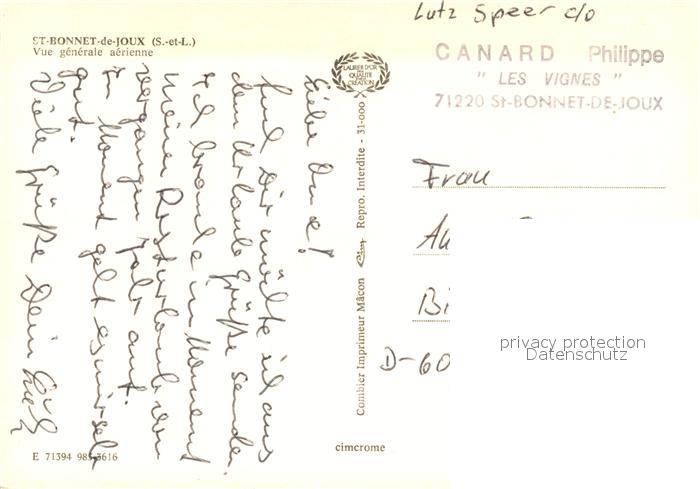 ST-BONNET-de-JOUX (S.-et-L.)
Vue générale aérienne
Lutz Speer c/o
CANARD Philippe
" LES VIGNES "
71220 St-BONNET-DE-JOUX
LAURIER D'OR
DE LA
QUALITÉ
DE
CRÉATION
Liebe
Auch Dir möchte ich aus
dem Urlaub Grüße senden.
Ich brauche im Moment
meinen Resturlaub vom
vergangenen Jahr auf.
Im Moment geht es mir sehr
gut.
Viele Grüße Dein Lutz
Combier Imprimeur Mâcon Cim Repro. Interdite - 31-000
Frau
Au
Bi
D-60
privacy protection
Datenschutz
cimcrome
E 71394 985 3616